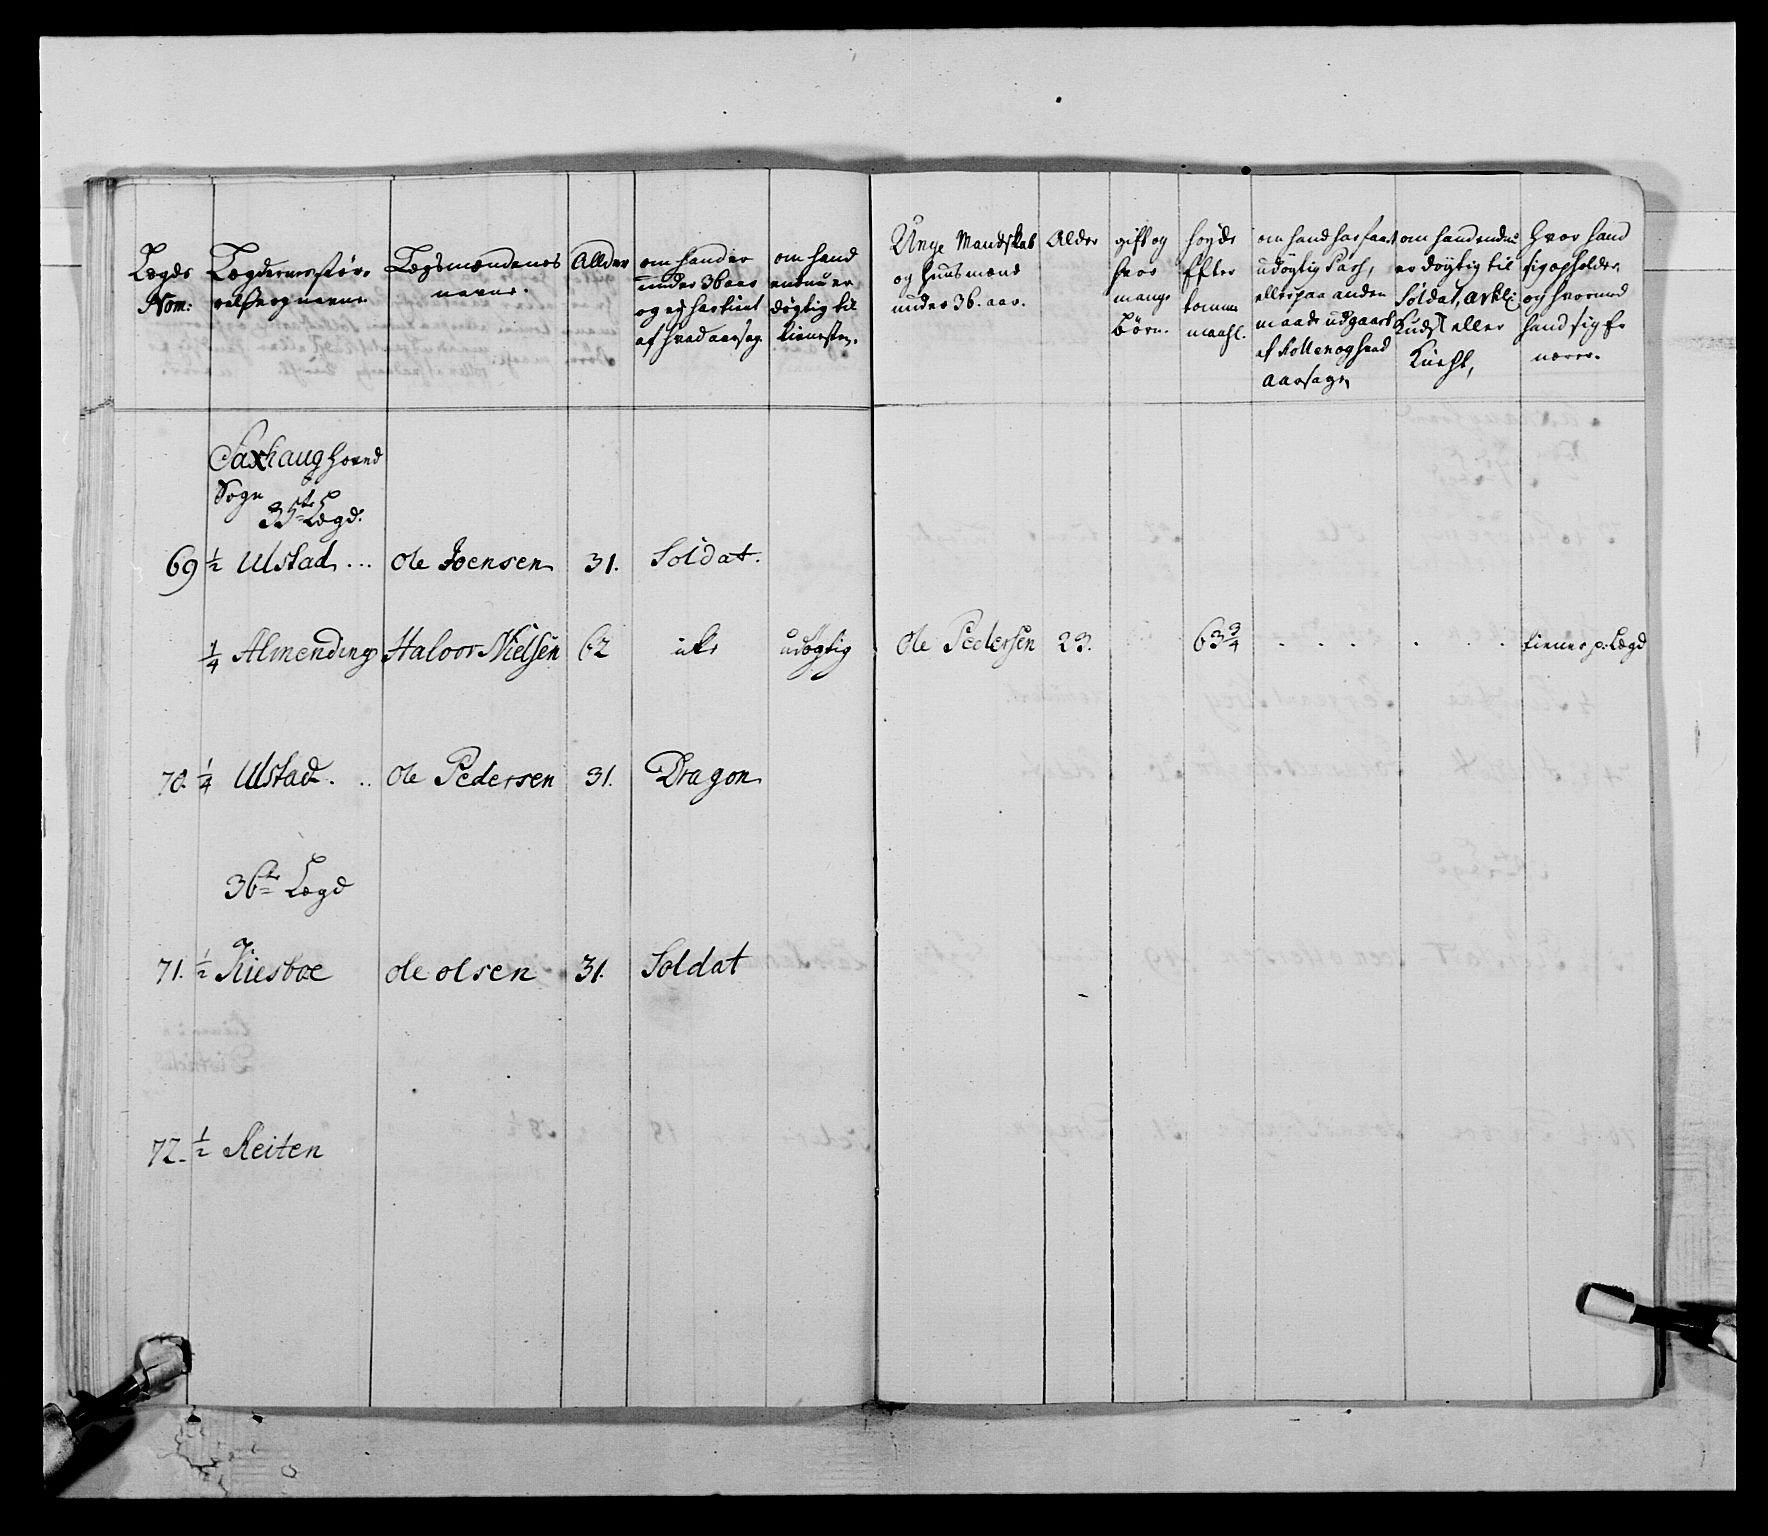 Lægds
Nom:
Lægdernes stør-
relse og navne.
Lægsmændenes
navne.
Allder
om hand er
under 36 aar
og ey har tient
af hvad aarsag.
om hand
endnu er
døgtig til
tienesten.
Unge Mandskab
og Huusmænd
under 36. aar.
Alder
gift og
hvor
mange
børn.
høyde
efter
tomme
maahl.
om hand har faaet
udøgtig Pass,
eller paa anden
maade udgaaet
af Rollen og hvad
Aarsage,
om hand endnu
er døygtig til
Soldat, Artli:
Kudsk eller
Knegt,
Hvor hand
sig opholder,
og hvormed
hand sig er
nærer.
Saxhaug Hoved
Sogn
35te Lægd.
69 ½ Ulstad ... Ole Joensen 31. Soldat.
¼ Almending Haloor Nielsen 62 ike udøgtig Ole Pedersen 23. 63¾ . . . . . . tiener p: Lægd
70. ¼ Ulstad . .. Ole Pedersen 31. Dragon
36te Lægd
71. ½ Kiesboe Ole Olsen 31. Soldat
72. ½ Reiten